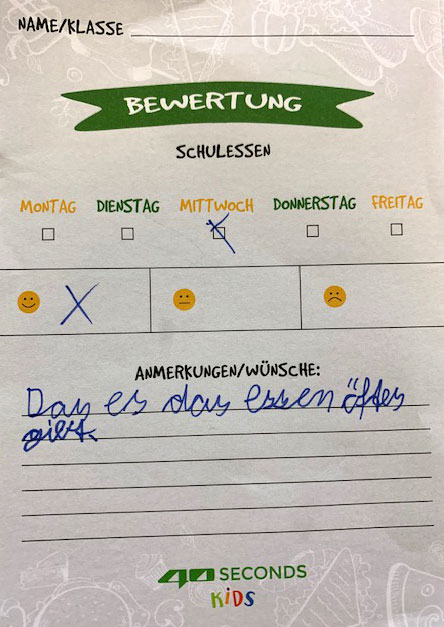 NAME/KLASSE
BEWERTUNG
SCHULESSEN
MONTAG DIENSTAG MITTWOCH DONNERSTAG FREITAG
X
X
ANMERKUNGEN/WÜNSCHE:
Das es das essen öfters
giebt.
40 SECONDS
KiDS